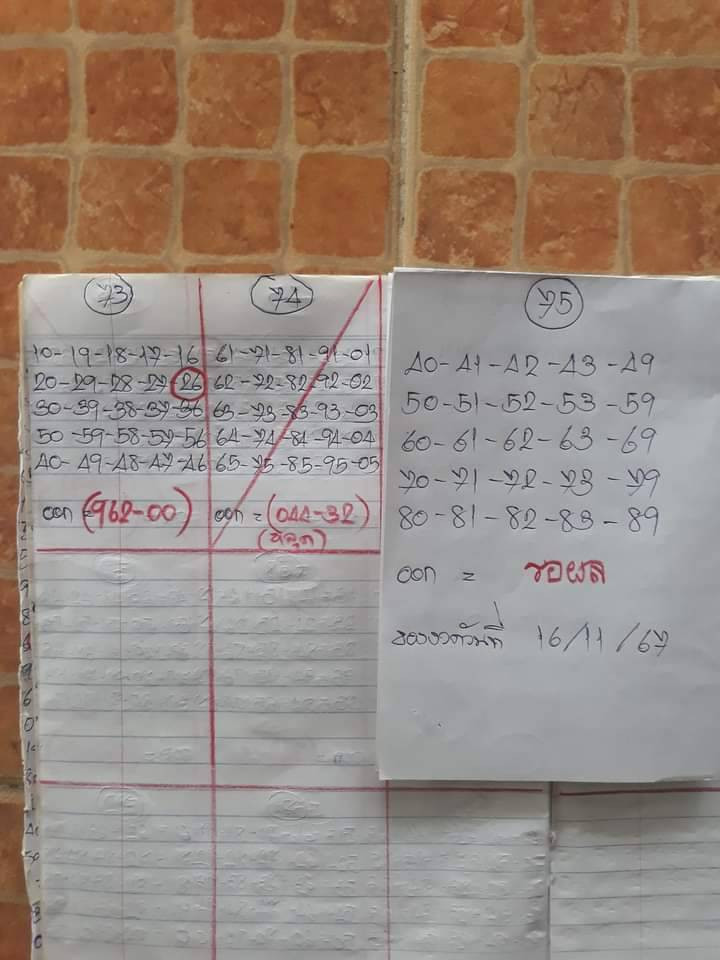 73
10-19-18-17-16
20-29-28-27-26
30-39-38-37-36
50-59-58-57-56
40-49-48-47-46
ออก = (962-00)
74
61-71-81-91-01
62-72-82-92-02
63-73-83-93-03
64-74-84-94-04
65-75-85-95-05
ออก = (044-32)
(หลุด)
75
40-41-42-43-49
50-51-52-53-59
60-61-62-63-69
70-71-72-73-79
80-81-82-83-89
ออก = รอผล
ของงวดวันที่ 16/11/67